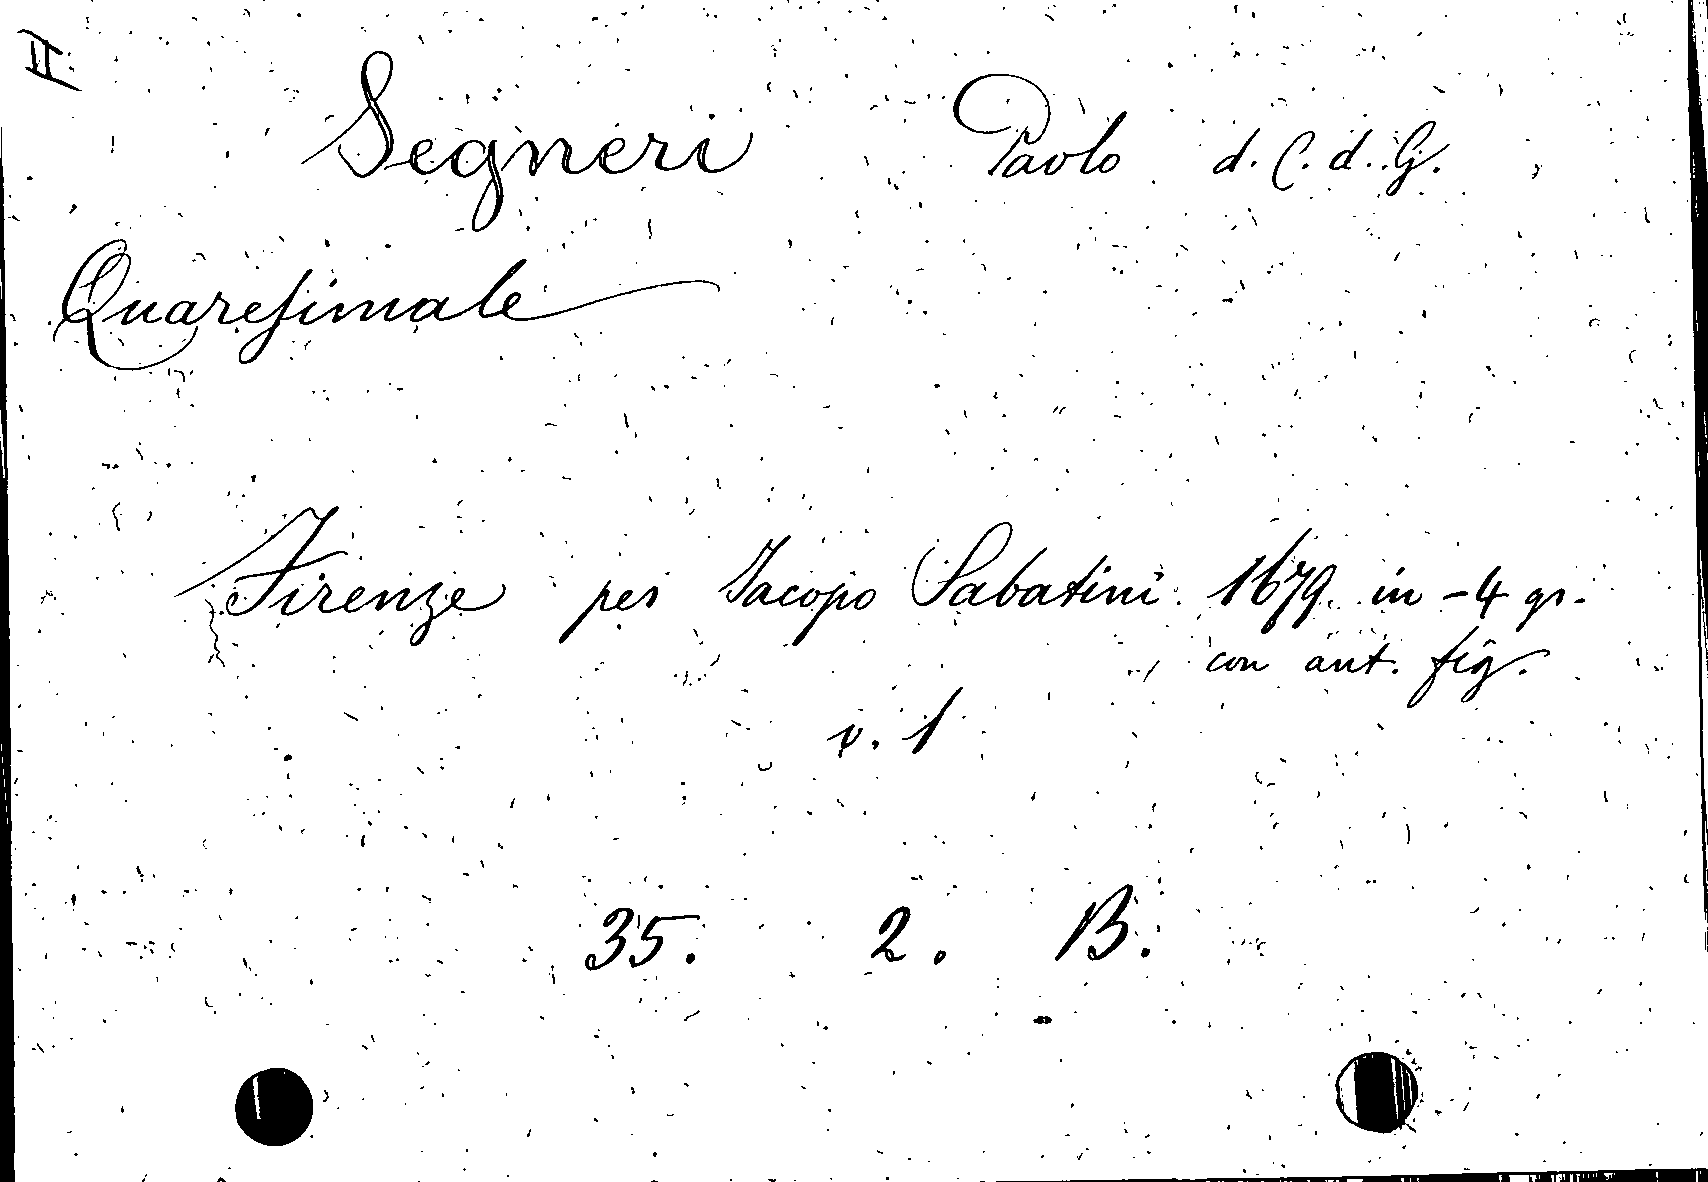 II.
Segneri Paolo d. C. d. G.
Quaresimale
Firenze per Jacopo Sabatini 1679. in-4 gr.
con ant. fig.
v. 1
35. 2. B.